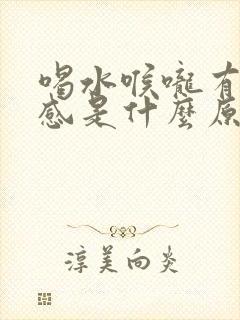 喝水喉嚨有
感是什麼原
淳美向炎